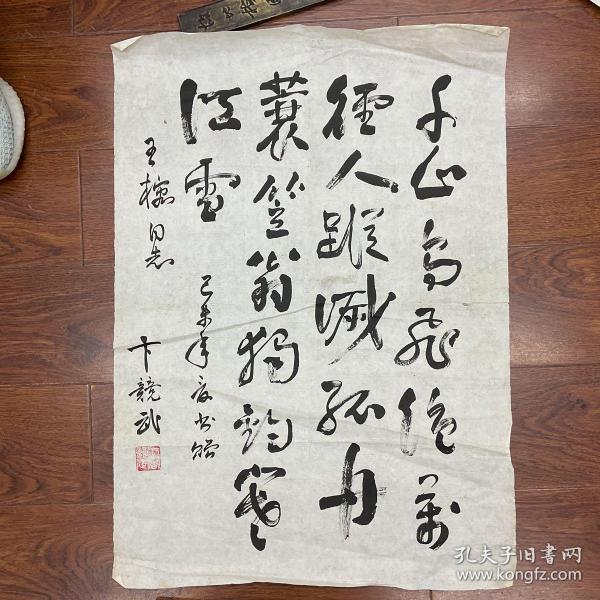 千山鸟飞绝万
径人蹤滅孤舟
蓑笠翁独钓寒
江雪
己未年夏书赠
王 同志
卞競武
孔夫子旧書网
www.kongfz.com